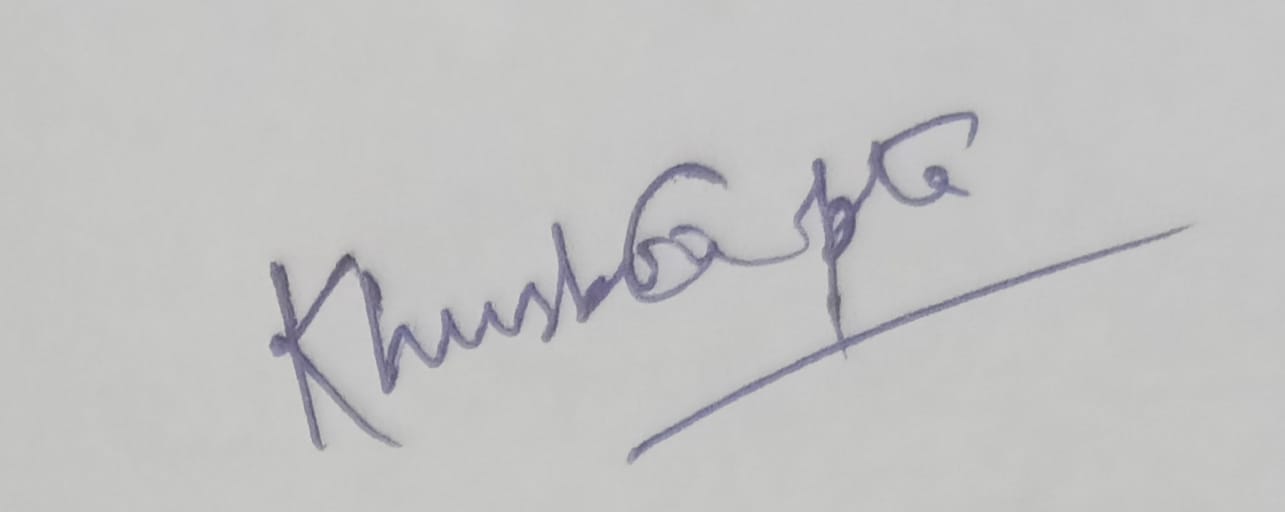 Khushboo Gupta